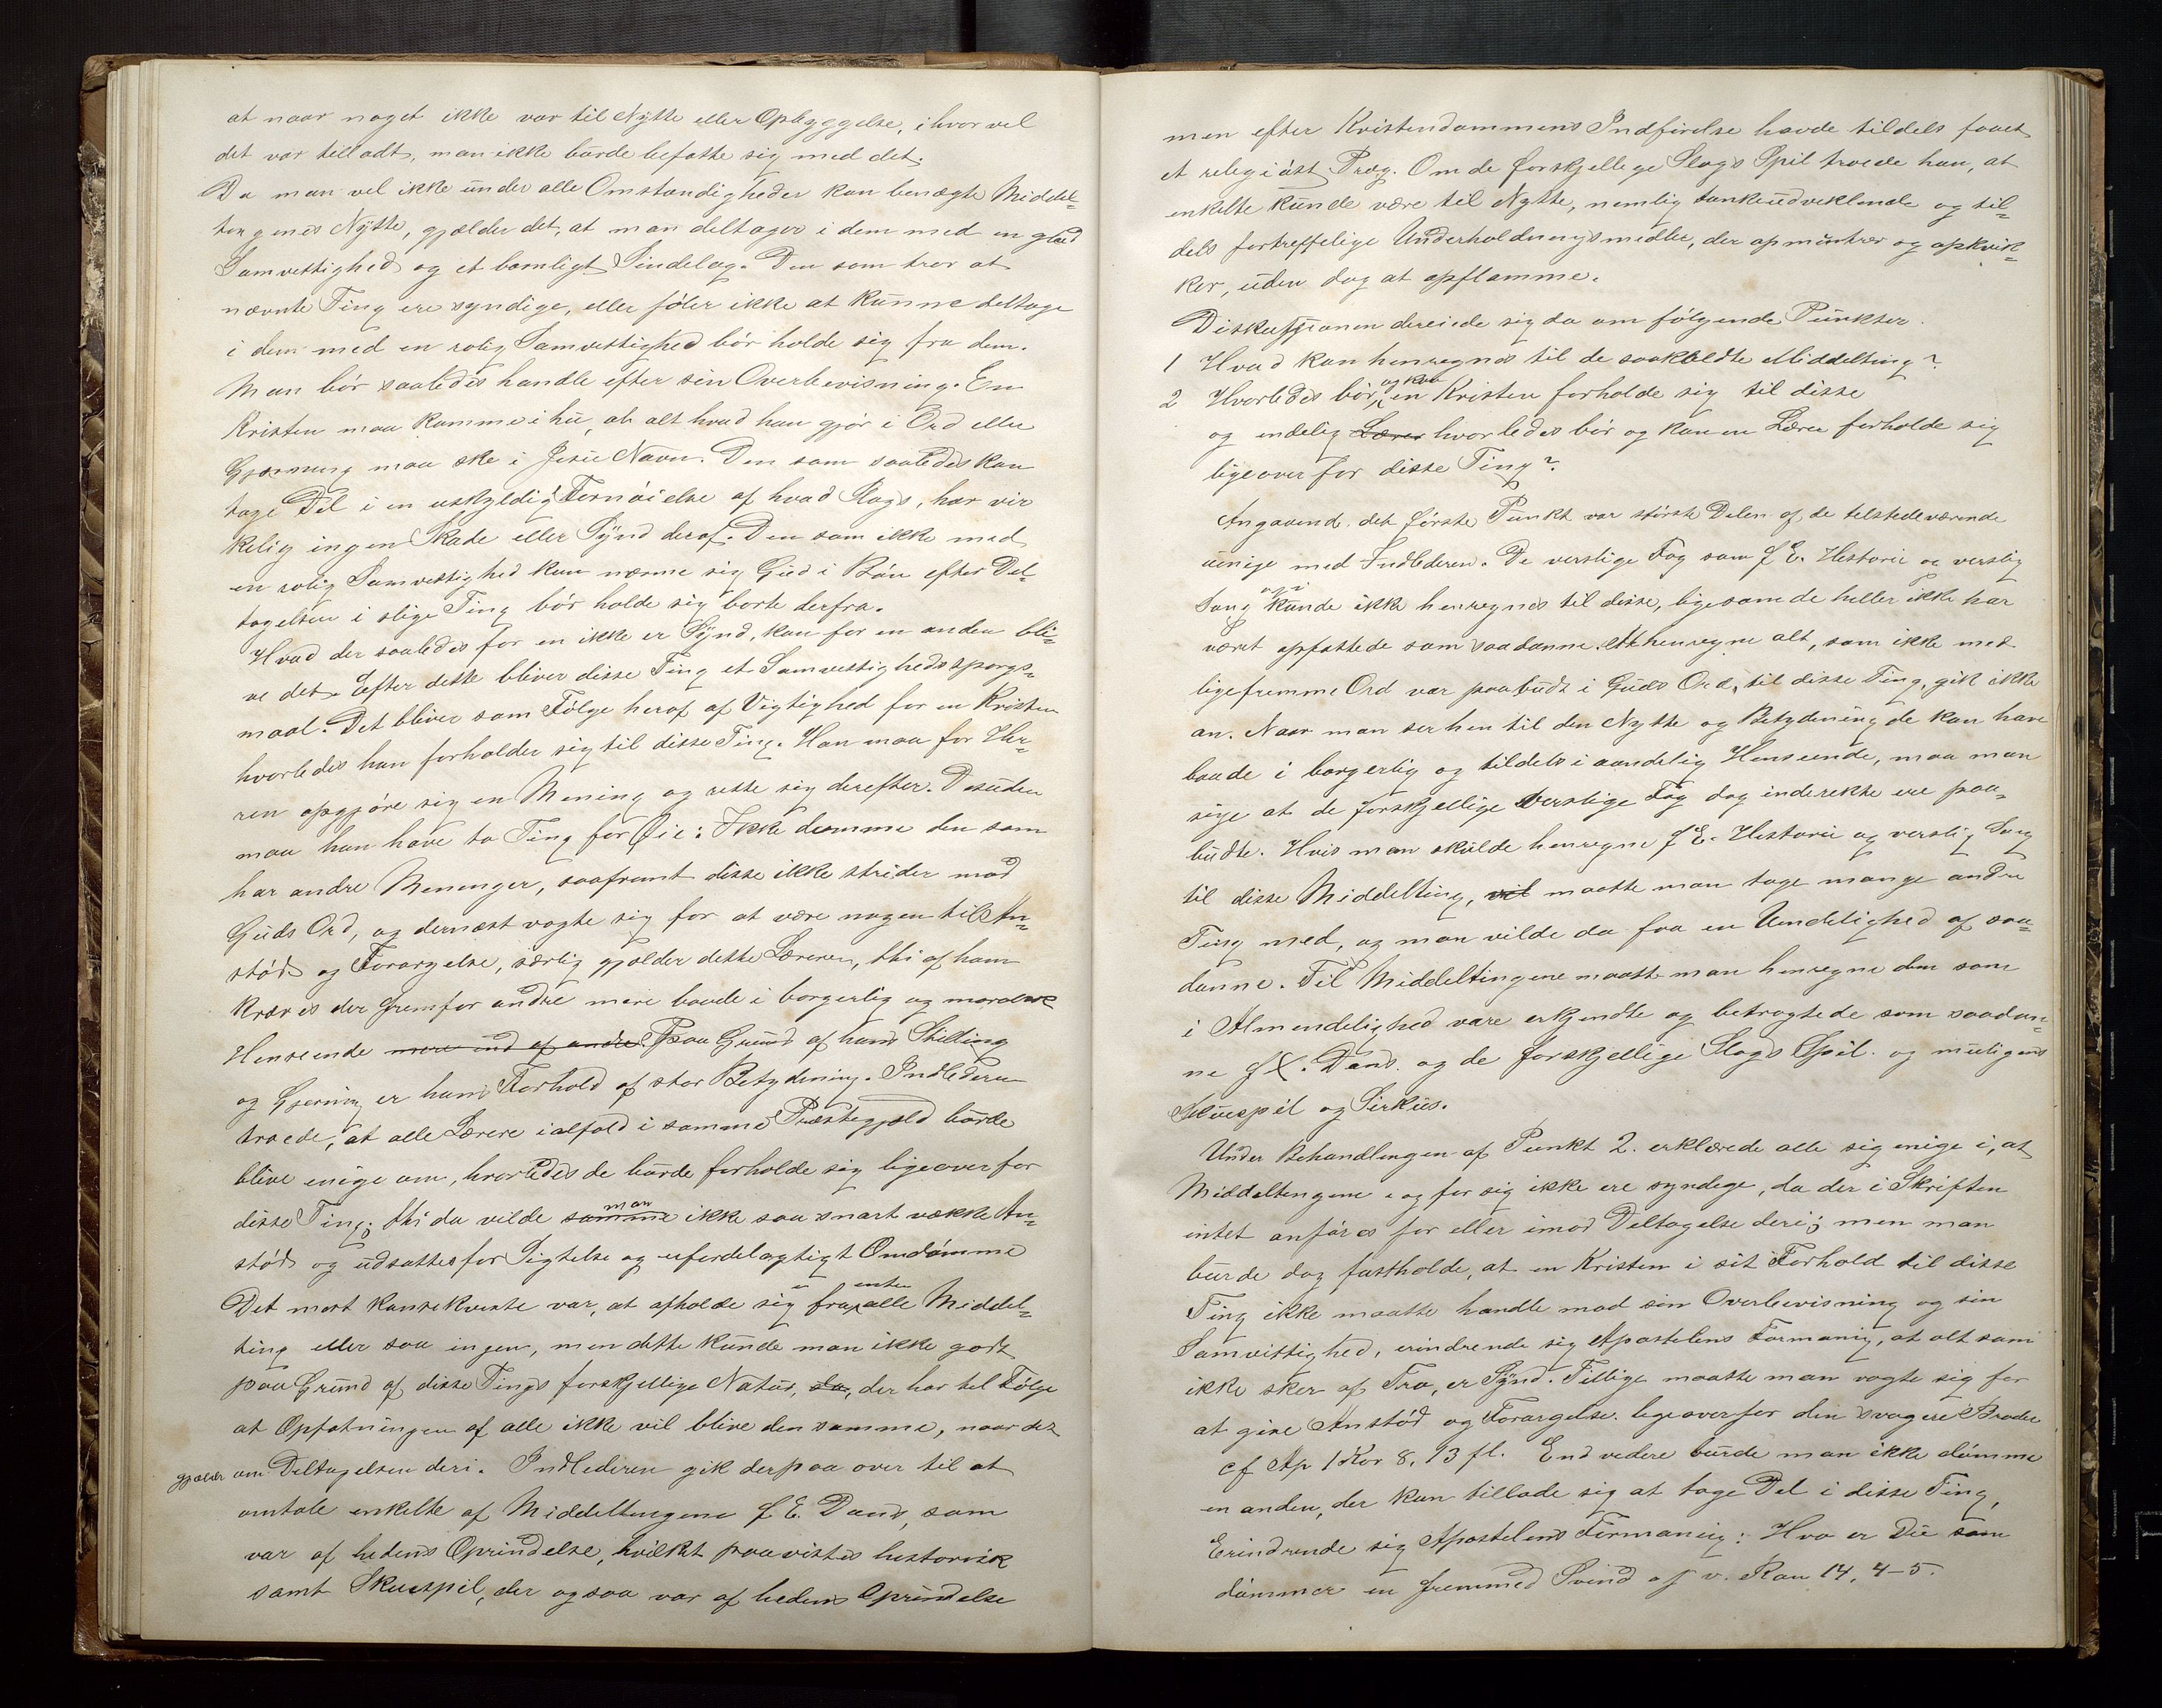 at naar noget ikke var til Nytte eller Opbyggelse, ihvorvel
det var tilladt, man ikke burde befatte sig med det.
Da man vel ikke under alle Omstændigheder kan benægte Middel-
tingenes Nytte, gjælder det, at man deltager i dem med en glad
Samvettighed og et barnligt Sindelag. Den som tror at
nævnte Ting ere syndige, eller føler ikke at kunne deltage
i dem med en rolig Samvettighed bør holde sig fra dem.
Man bør saaledes handle efter sin Overbevisning. En
Kristen maa komme ihu, at alt hvad han gjør i Ord eller
Gjærning maa ske i Jesu Navn. Den som saaledes kan
tage Del i en uskyldig Fornøielse af hvad Slags, har vir
kelig ingen Skade eller Synd deraf. Den som ikke med
en rolig Samvettighed kan nærme sig Gud i Bøn efter Del-
tagelsen i slige Ting bør holde sig borte derfra.
Hvad der saaledes for en ikke er Synd, kan for en anden bli-
ve det. Efter dette bliver disse Ting et Samvettighedsspørgs-
maal. Det bliver som Følge heraf af Vigtighed for en Kristen
hvorledes han forholder sig til disse Ting. Han maa for Her-
ren opgjøre sig en Mening og rette sig derefter. Desuden
maa han have to Ting for Øie: Ikke dømme den som
har andre Meninger, saafremt disse ikke strider mod
Guds Ord, og dernæst vogte sig for at være nogen til An-
stød og Forargelse, særlig gjælder dette Læreren, thi af ham
kræves der fremfor andre mere baade i borgerlig og moralsk
Henseende mere end af andre. Paa Grund af hans Stilling
og Gjerning er hans Forhold af stor Betydning. Indlederen
troede, at alle Lærere ialfald i samme Præstegjæld burde
blive enige om, hvorledes de burde forholde sig ligeoverfor
disse Ting; thi da vilde samme man ikke saa snart vække An-
stød og udsættes for Sigtelse og ufordelagtigt Omdømme
Det mest konsekvente var, at afholde sig fra enten alle Middel-
ting eller saa ingen, men dette kunde man ikke godt
paa Grund af disse Tings forskjellige Natur, da, der har til Følge
at Opfatningen af alle ikke vil blive den samme, naar det
gjælder om Deltagelsen deri. Indlederen gik derpaa over til at
omtale enkelte af Middeltingene f E. Dans, som
var af hedensk Oprindelse, hvilket paavistes historisk
samt Skuespil, der ogsaa var af hedensk Oprindelse
men efter Kristendommens Indførelse havde tildels faaet
et religiøst Præg. Om de forskjellige Slags Spil troede han, at
enkelte kunde være til Nytte, nemlig tankeudviklende og til-
dels fortreffelige Underholdningsmidler, der opmuntrer og opkvik-
ker, uden dog at opflamme.
Diskussionen dreiede sig da om følgende Punkter.
1 Hvad kan henregnes til de saakaldte Middelting?
2 Hvorledes bør og kan en Kristen forholde sig til disse
og endelig Lærer hvorledes bør og kan en Lærer forholde sig
ligeoverfor disse Ting?
Angaaend. det første Punkt var største Delen af de tilstedeværende
uenige med Indlederen. De verslige Fag som f E. Historie og verslig
Sang kunde ikke henregnes til disse, ligesom de heller ikke har
været opfattede som saadanne. At henregne alt, som ikke med
ligefremme Ord var paabudt i Guds Ord, til disse Ting, gik ikke
an. Naar man ser hen til den Nytte og Betydning de kan have
baade i borgerlig og tildels i aandelig Henseende, maa man
sige at de forskjellige verslige Fag dog inderekte ere paa-
budte. Hvis man skulde henregne f E. Historie og verslig Sang
til disse Middelting, vil maatte man tage mange andre
Ting med, og man vilde da faa en Uendelighed af saa-
danne. Til Middeltingene maatte man henregne dem som
i Almendelighed vare erkjendte og betragtede som saadan-
ne f X. Dans. og de forskjellige Slags Spil. og muligens
Skuespil og Sirkus.
Under Behandlingen af Punkt 2. erklærede alle sig enige i, at
Middeltingene i og for sig ikke ere syndige, da der i Skriften
intet anføres for eller imod Deltagelse deri; men man
burde dog fastholde, at en Kristen i sit Forhold til disse
Ting ikke maatte handle mod sin Overbevisning og sin
Samvittighed, erindrende sig Apostelens Formaning, at alt som
ikke sker af Tro, er Synd. Tillige maatte man vogte sig for
at give Anstød og Forargelse. ligeoverfor den svagere Broder
cf Ap 1 Kor 8, 13 fl. End videre burde man ikke dømme
en anden, der kan tillade sig at tage Del i disse Ting,
Erindrende sig Apostelens Formaning: Hvo er Du som
dømmer en fremmed Svend osv. Rom 14, 4-5.